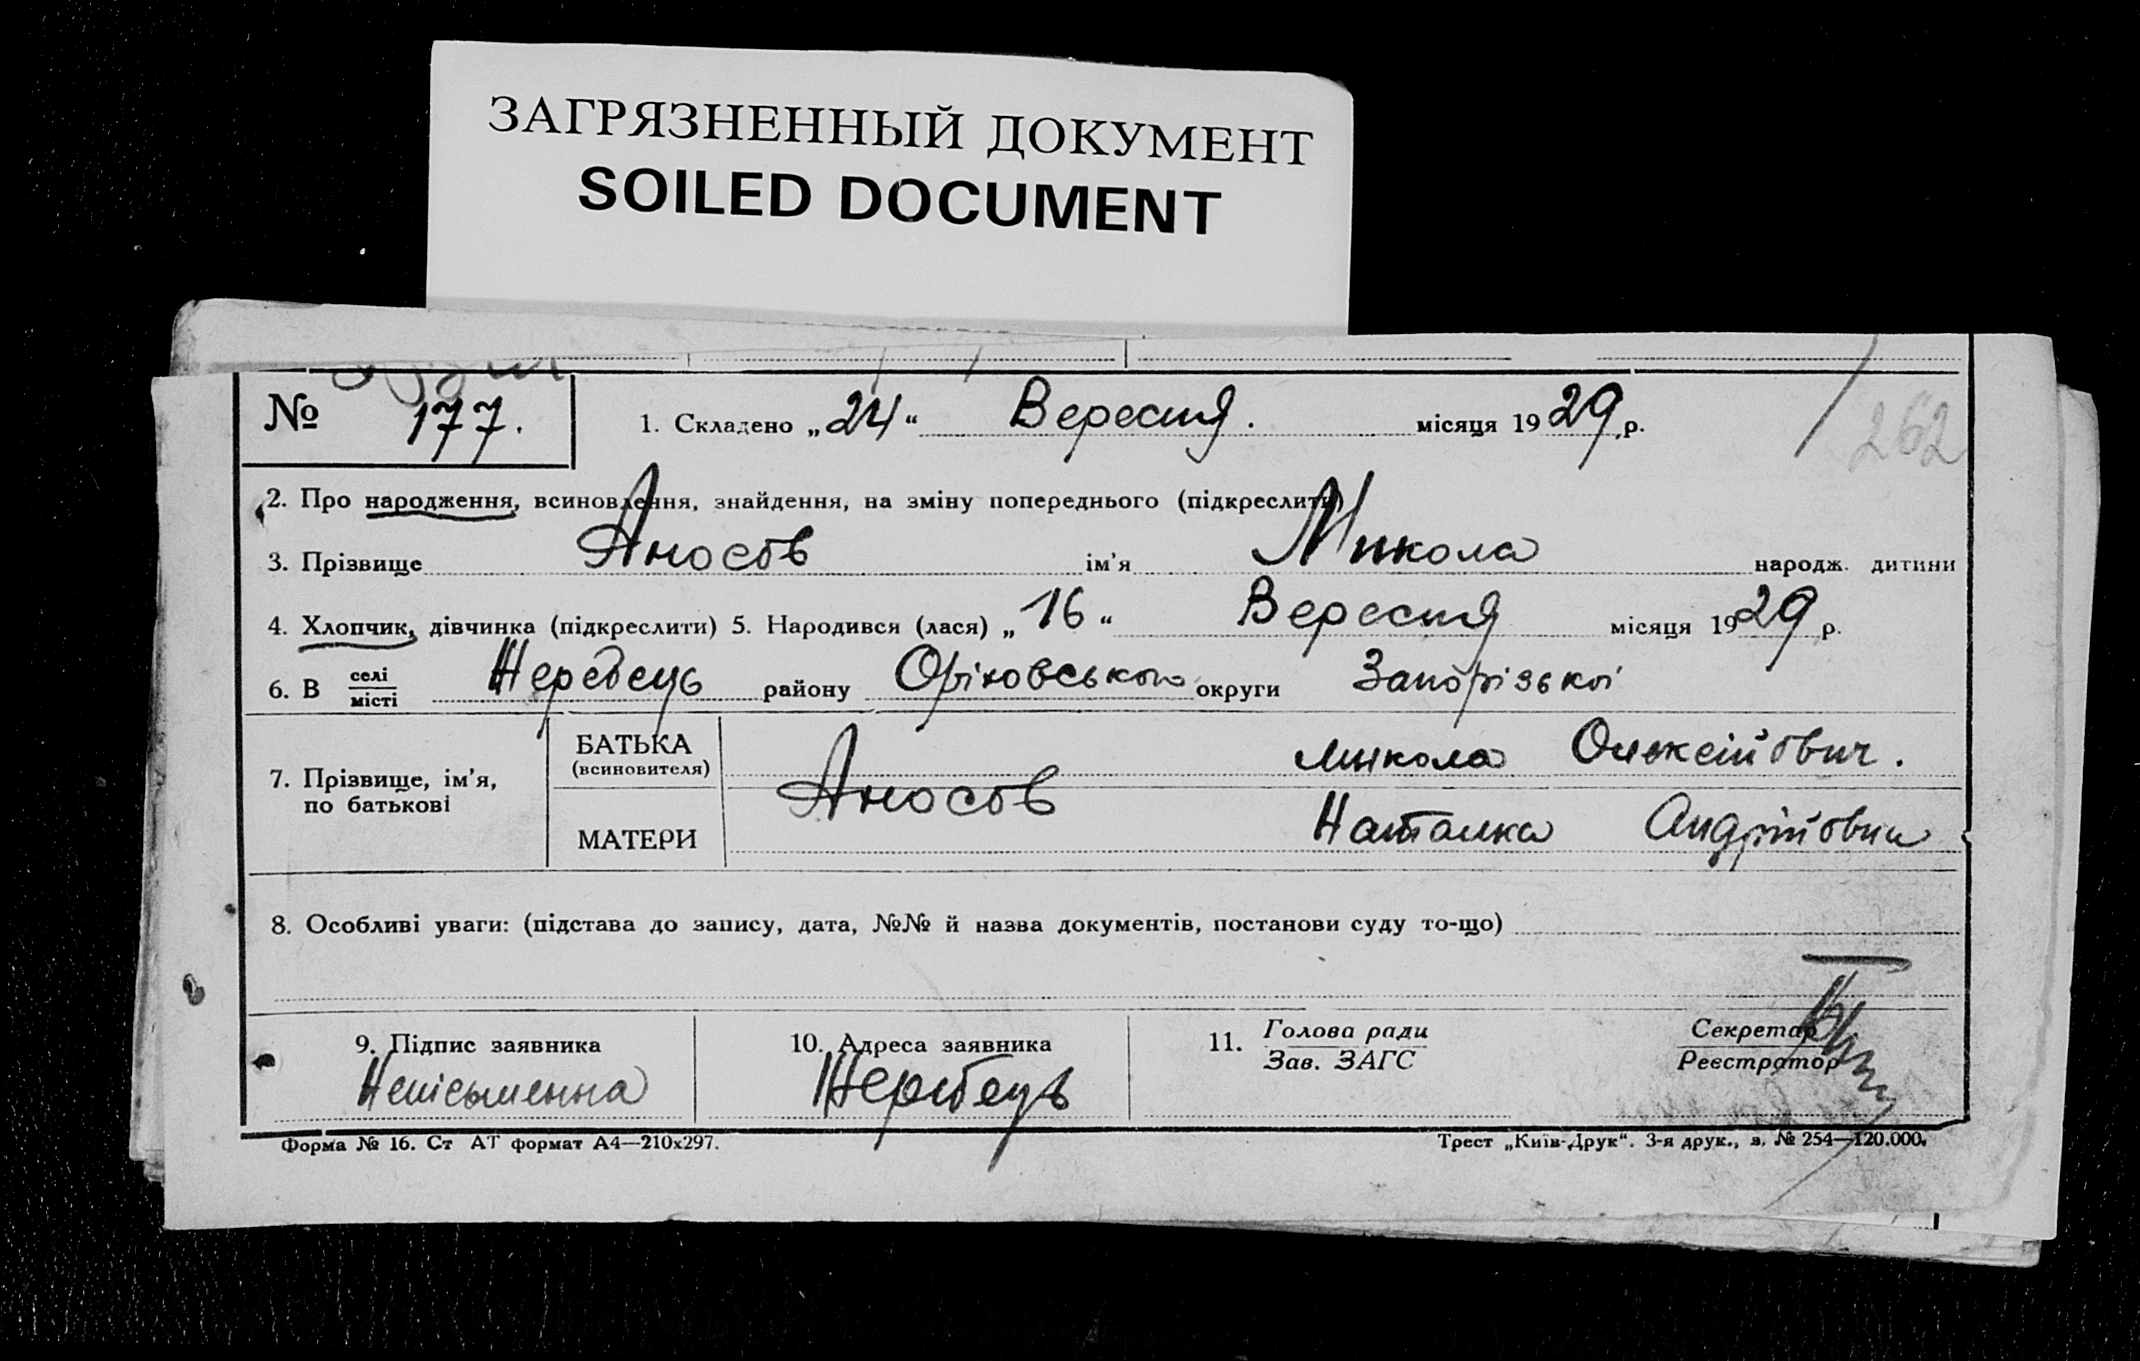 ЗАГРЯЗНЕННЫЙ ДОКУМЕНТ
SOILED DOCUMENT
№ 177. 1. Складено „24“ Вересня. місяця 1929 р.
262
2. Про народження, всиновлення, знайдення, на зміну попереднього (підкреслити)
3. Прізвище Аносов ім'я Микола народж. дитини
4. Хлопчик, дівчинка (підкреслити) 5. Народився (лася) „16“ Вересня місяця 1929 р.
6. В селі місті Жеребець району Оріховського округи Запорізької
7. Прізвище, ім'я, по батькові
БАТЬКА (всиновителя) Аносов Микола Олексійович.
МАТЕРИ Наталка Андрійовна
8. Особливі уваги: (підстава до запису, дата, №№ й назва документів, постанови суду то-що)
9. Підпис заявника 10. Адреса заявника 11. Голова ради Секретар
Зав. ЗАГС Реєстратор
Неписьменна Жеребець
Форма № 16. Ст АТ формат А4—210x297. Трест „Київ-Друк“. 3-я друк., з. № 254—120.000.